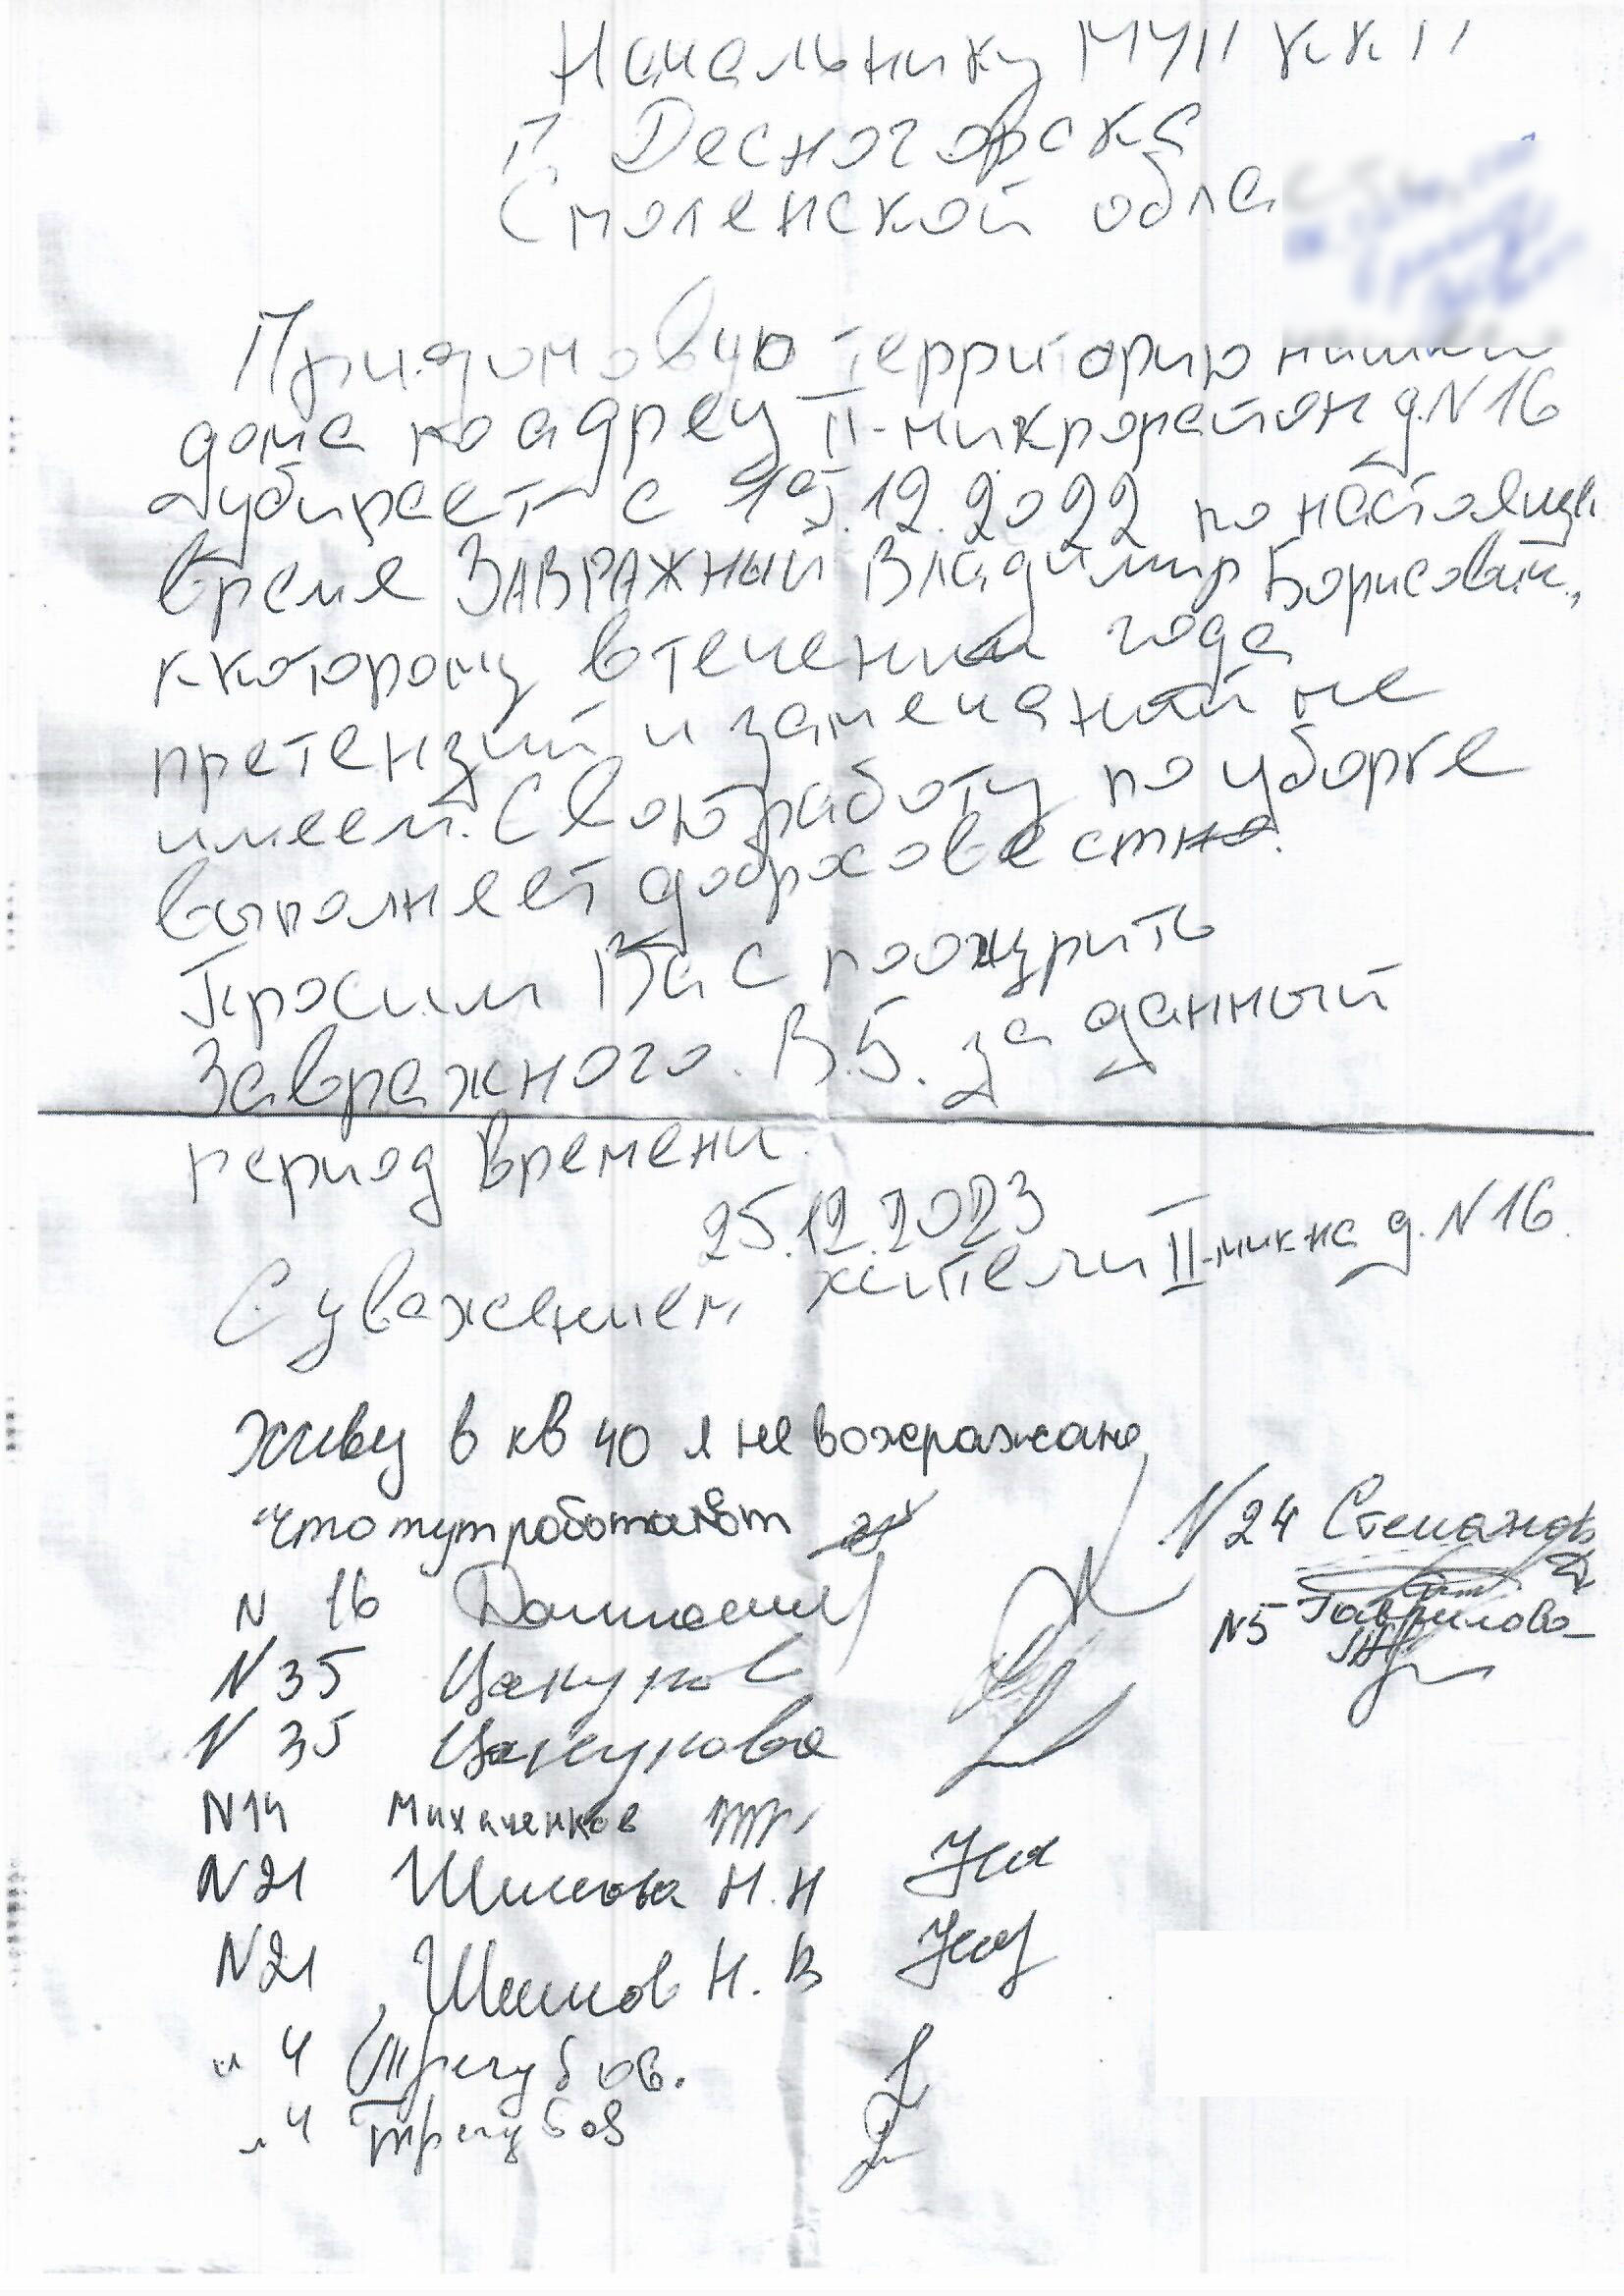 Начальнику МУП ККП
г. Десногорска
Смоленской обла
Придомовую территорию нашего
дома по адресу II-микрорайон д.N16
убирает с 15.12.2022 по настоящее
время ЗАВРАЖНЫЙ Владимир Борисович,
к которому в течении года
претензий и замечаний не
имеем. Свою работу по уборке
выполняет добросовестно.
Просим Вас поощрить
Завражного. В.Б. за данный
период времени.
25.12.2023
С уважением, жители II-мик-на д.N16.
Живу в кв 40 я не возражаю
что тут работают
N24 Степанов
N5 Гаврилова
N 16
N 35 Цакунов
N 35 Цакунова
N14 Михаченков
N21 Шилова Н.Н
N21 Шилов Н.В
" 4 Трегубов.
" 4 Трегубов